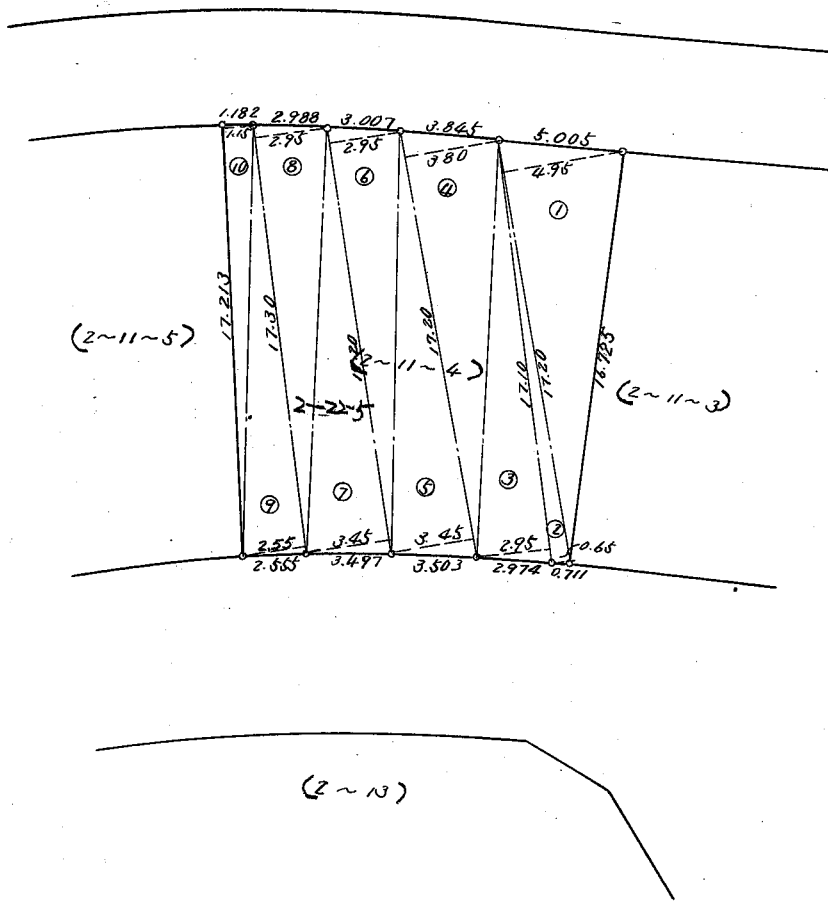 1.182 2.988 3.007 3.845 5.005
1.15 2.95 2.95 3.80 4.95
⑩ ⑧ ⑥ ④ ①
17.213 17.30 17.20 17.10 17.20 16.725
(2~11~5) (2~11~4) (2~11~3)
2-22-5
⑨ ⑦ ⑤ ③ ②
2.55 3.45 3.45 2.95 0.65
2.555 3.497 3.503 2.974 0.711
(2~13)